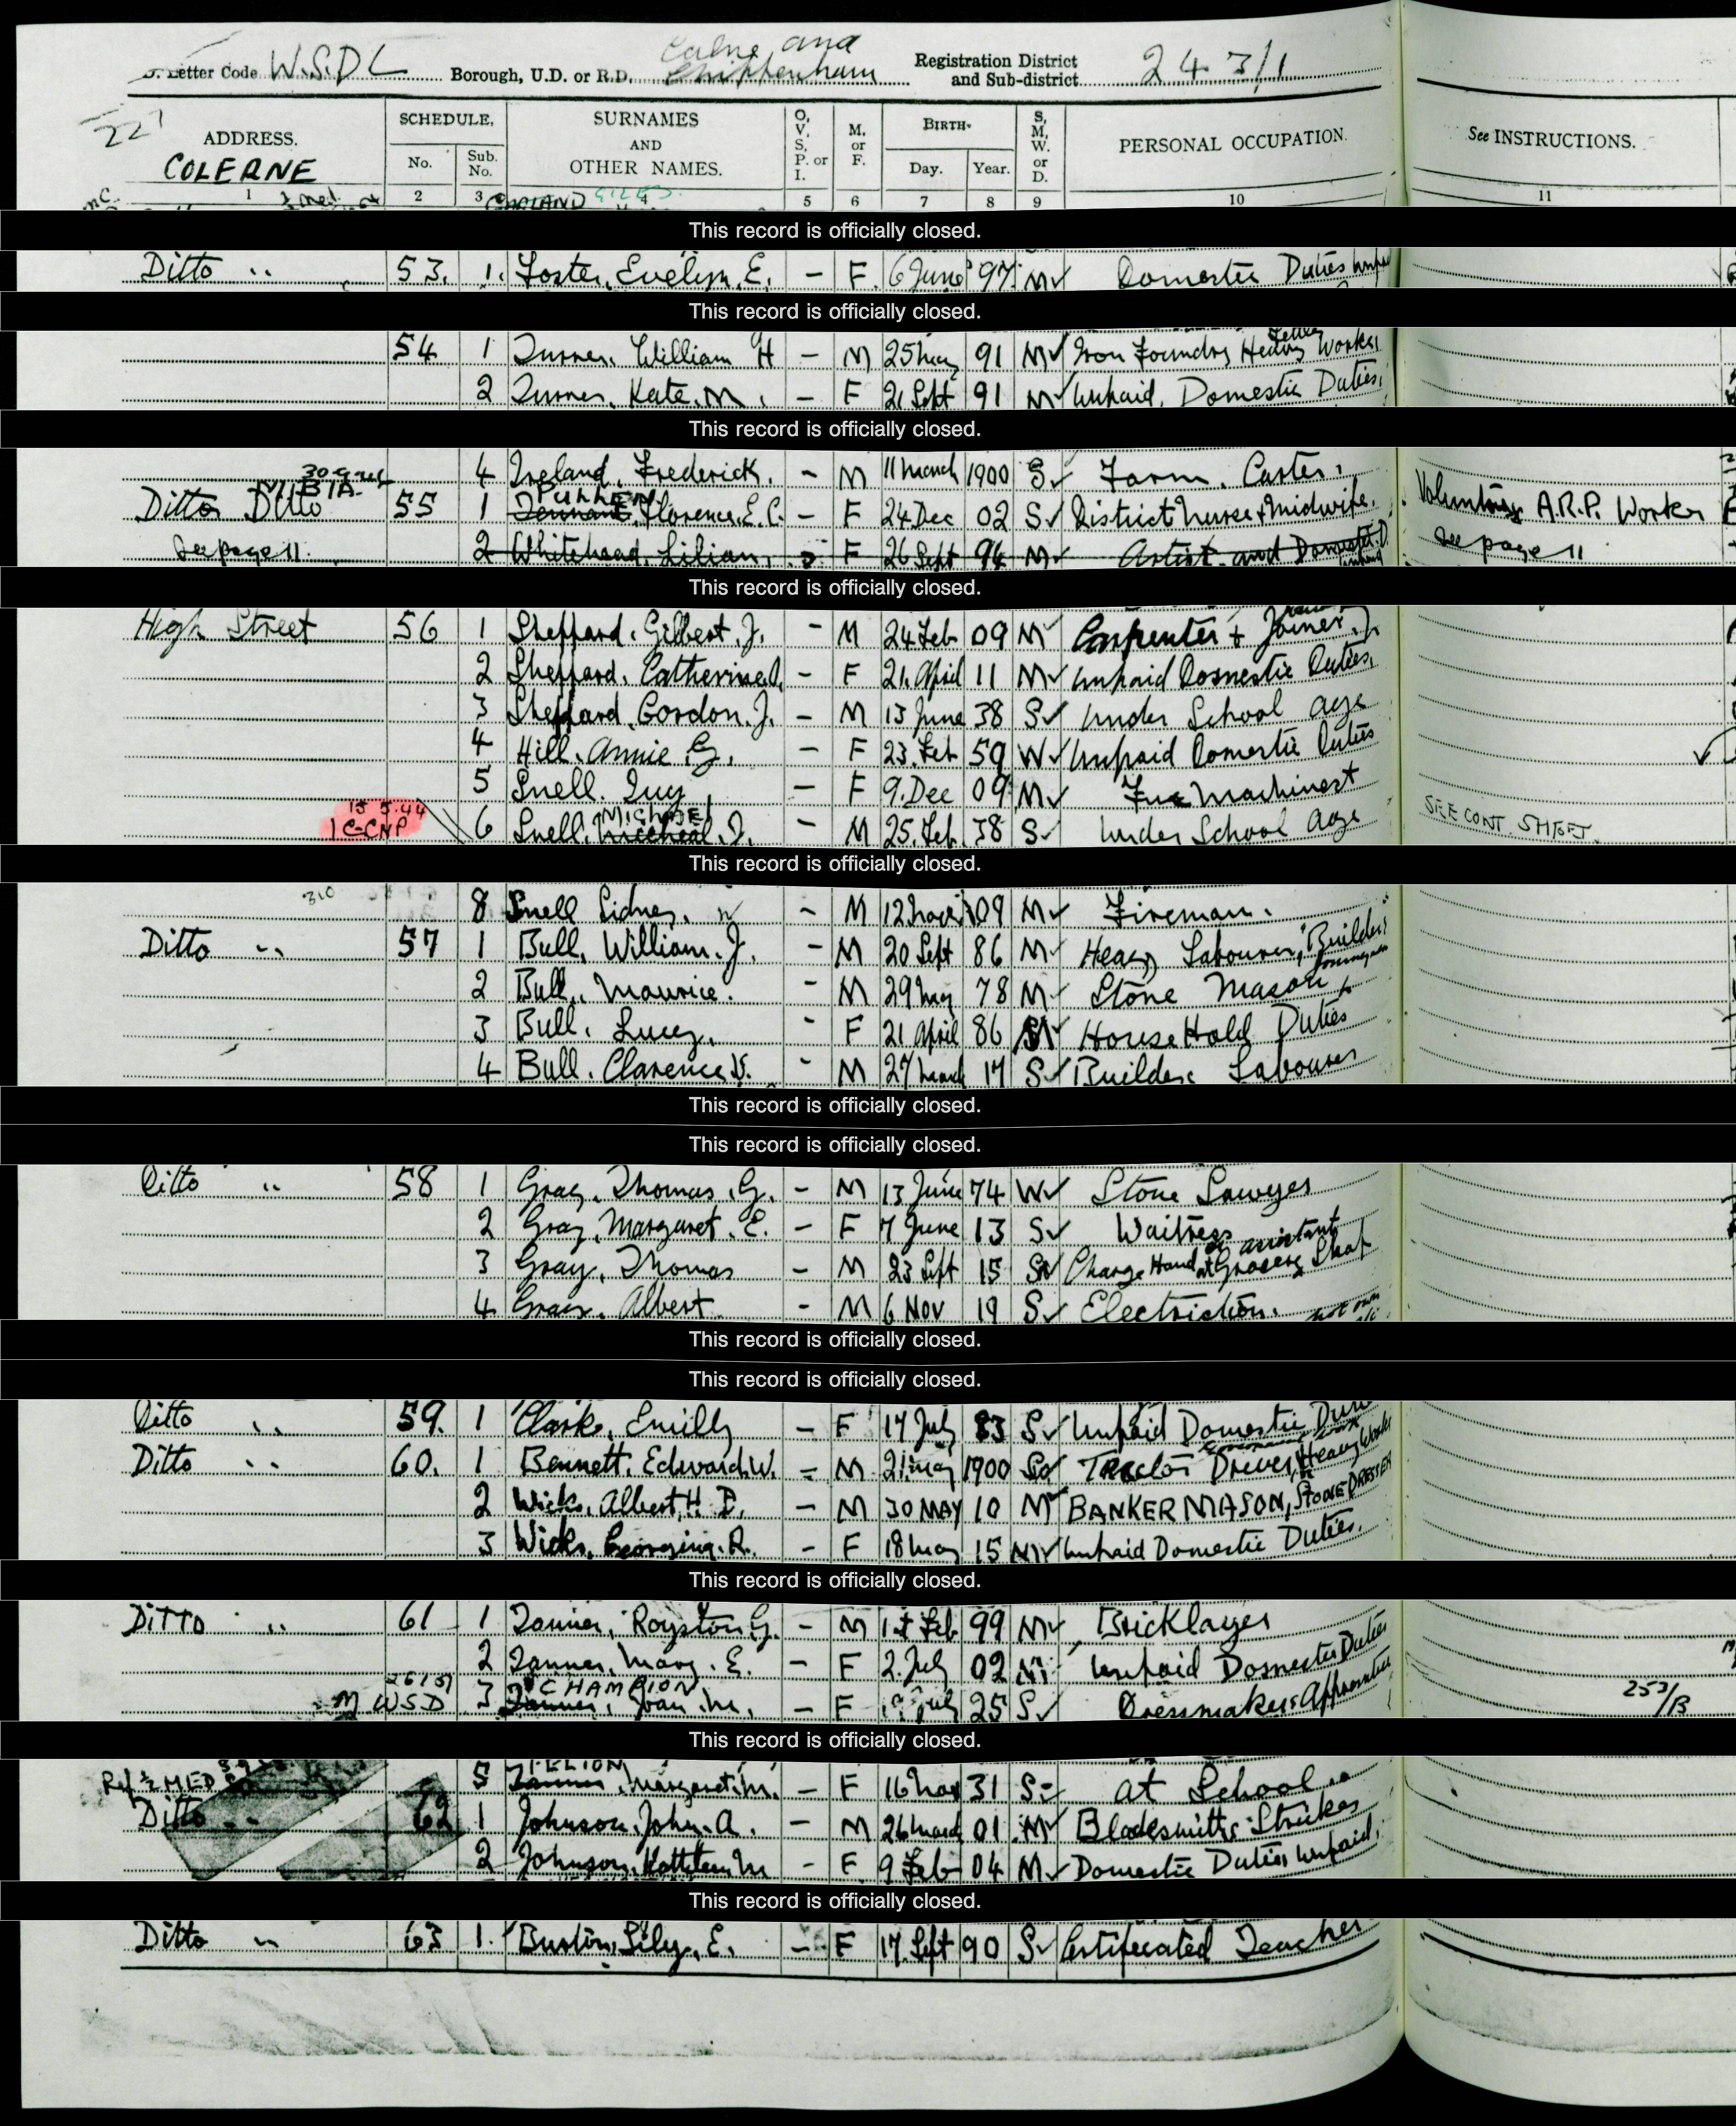 Letter Code W.S.D L Borough, U.D. or R.D. Calne and Chippenham Registration District and Sub-district 243/1
221
ADDRESS. SCHEDULE. SURNAMES AND OTHER NAMES. O, V, S, P. or I. M. or F. BIRTH- S, M, W. or D. PERSONAL OCCUPATION. See INSTRUCTIONS.
COLERNE No. Sub. No. Day. Year.
1 2 3 4 5 6 7 8 9 10 11
This record is officially closed.
Ditto " 53. 1. Foster, Evelyn, E. - F. 6 June 97. M Domestic Duties
This record is officially closed.
54 1 Turner, William H - M 25 May 91 M Iron Foundry Heavy Worker
2 Turner, Kate. M. - F 21 Sept 91 M Unpaid Domestic Duties.
This record is officially closed.
4 Ireland, Frederick. - M 11 March 1900 S Farm Carter.
Ditto Ditto 55 1 PULLEN Florence. E. C. - F 24 Dec 02 S District Nurse & Midwife. Voluntary A.R.P. Worker
See page 11. 2 Whitehead, Lilian, F 26 Sept 94 M Artist and See page 11
This record is officially closed.
High Street 56 1 Sheppard. Gilbert. J. - M 24 Feb 09 M Carpenter & Joiner
2 Sheppard. Catherine. - F 21. April 11 M Unpaid Domestic Duties.
3 Sheppard. Gordon. J. - M 13 June 38 S Under School age
4 Hill. Annie G. - F 23. Feb 59 W Unpaid Domestic Duties
5 Snell. Ivy - F 9. Dec 09 M Machinest
15 5.44 1 C-CNP 6 Snell. MICHAEL J. - M 25. Feb. 38 S Under School age SEE CONT. SHEET.
This record is officially closed.
310 8 Snell Sidney. W - M 12 09 M Fireman.
Ditto " 57 1 Bull, William. J. - M 20 Sept 86 M Heavy Labourer, Builders
2 Bull, Maurice. - M 29 May 78 M Stone Mason
3 Bull. Lucy. - F 21 April 86 M House Hold Duties
4 Bull. Clarence. - M 27 March 17 S Builders Labourer
This record is officially closed.
This record is officially closed.
Ditto " 58 1 Gray, Thomas. G. - M 13 June 74 W Stone Sawyer
2 Gray, Margaret. E. - F 7 June 13 S Waitress
3 Gray, Thomas - M 23 Sept 15 S Charge Hand assistant at Grocery Shop
4 Gray, Albert - M 6 Nov 19 S Electrician.
This record is officially closed.
This record is officially closed.
Ditto " 59. 1 Clark, Emilly - F 17 July 83 S Unpaid Domestic
Ditto " 60. 1 Bennett, Edward. W. - M 21 May 1900 S Tractor Driver, Heavy Worker
2 Wicks, Albert, H. D. - M 30 MAY 10 M BANKER MASON, STONE DRESSER
3 Wicks, Georgina. R. - F 18 May 15 M Unpaid Domestic Duties.
This record is officially closed.
DITTO " 61 1 Tanner, Royston, G. - M 1 Feb 99 M Bricklayer
2 Tanner, Mary. E. - F 2. July 02 M Unpaid Domestic Duties
M WSD 3 CHAMPION Tanner, Joan. M. - F July 25 S Dressmakers Apprentice 253/13
This record is officially closed.
5 Tanner, Margaret. M. - F 16 31 S at School
Ditto " 62 1 Johnson, John. A. - M 26 March 01 M Blacksmiths Striker
2 Johnson, Kathleen M - F 9 Feb 04 M Domestic Duties Unpaid.
This record is officially closed.
Ditto " 63 1. Burton, Lily, E. - F 17. Sept 90 S Certificated Teacher